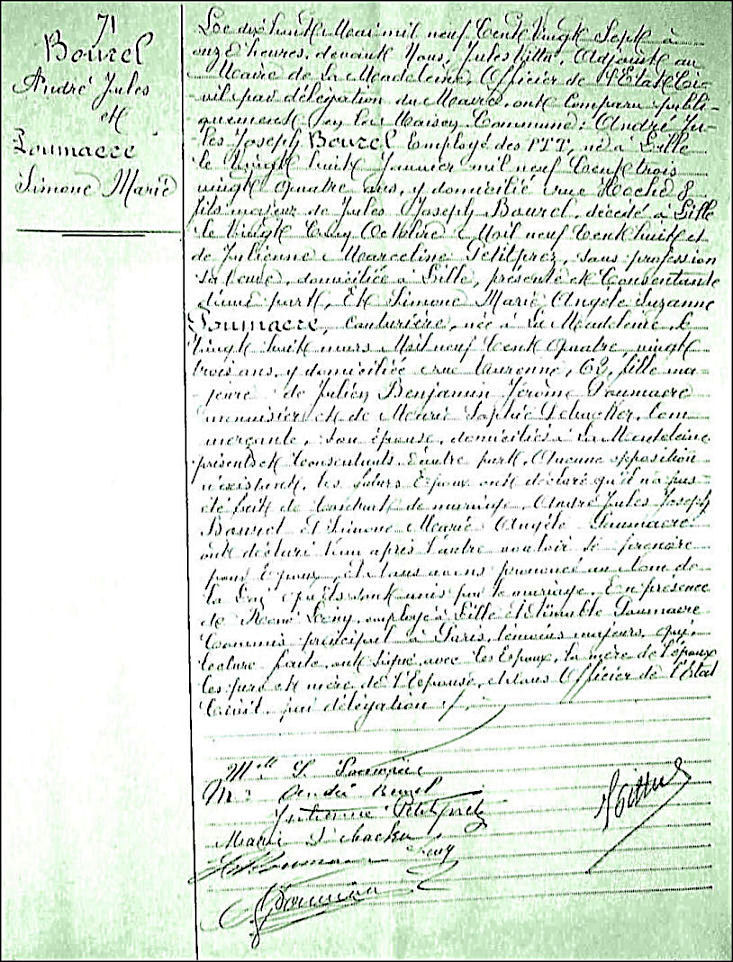 71
Bourel
André Jules
et
Poumaere
Simone Marie
Le dix huit Mai mil neuf Cent Vingt Sept à
onze heures, devant Nous, Jules Adjoint au
Maire de La Madeleine, Officier de l'Etat Ci-
vil par délégation du Maire, ont comparu publi-
quement en la Maison Commune: André Ju-
les Joseph Bourel Employé des PTT, né à Lille
le vingt huit Janvier mil neuf Cent trois
vingt quatre ans, y domicilié rue Hoche 8
fils majeur de Jules Joseph Bourel, décédé à Lille
le Vingt Cinq Octobre Mil neuf Cent huit et
de Julienne Marceline Petitprez, sans profession
sa veuve, domiciliée à Lille, présente et Consentante
d'une part, Et Simone Marie Angèle Suzanne
Poumaere, Couturière, née à La Madeleine, le
Vingt huit mars Mil neuf Cent Quatre, vingt
trois ans, y domiciliée rue 62, fille ma-
jeure de Julien Benjamin Jérôme Poumaere
menuisier et de Marie Sophie Com-
merçante, son épouse, domiciliés à La Madeleine
présents et Consentants d'autre part. Aucune opposition
n'existant, les futurs Epoux ont déclaré qu'il n'a pas
été fait de Contrat de mariage. André Jules Joseph
Bourel et Simone Marie Angèle Poumaere
ont déclaré l'un après l'autre vouloir se prendre
pour Epoux, et Nous avons prononcé au Nom de
la Loi qu'ils sont unis par le mariage. En présence
de René employé à Lille et Poumaere
Commis principal à Paris, témoins majeurs, qui,
lecture faite, ont signé avec les Epoux, la mère de l'époux
les père et mère de l'Epouse, et Nous Officier de l'Etat
Civil par délégation
Mlle S.
Mr André Bourel
Julienne Petitprez
Marie